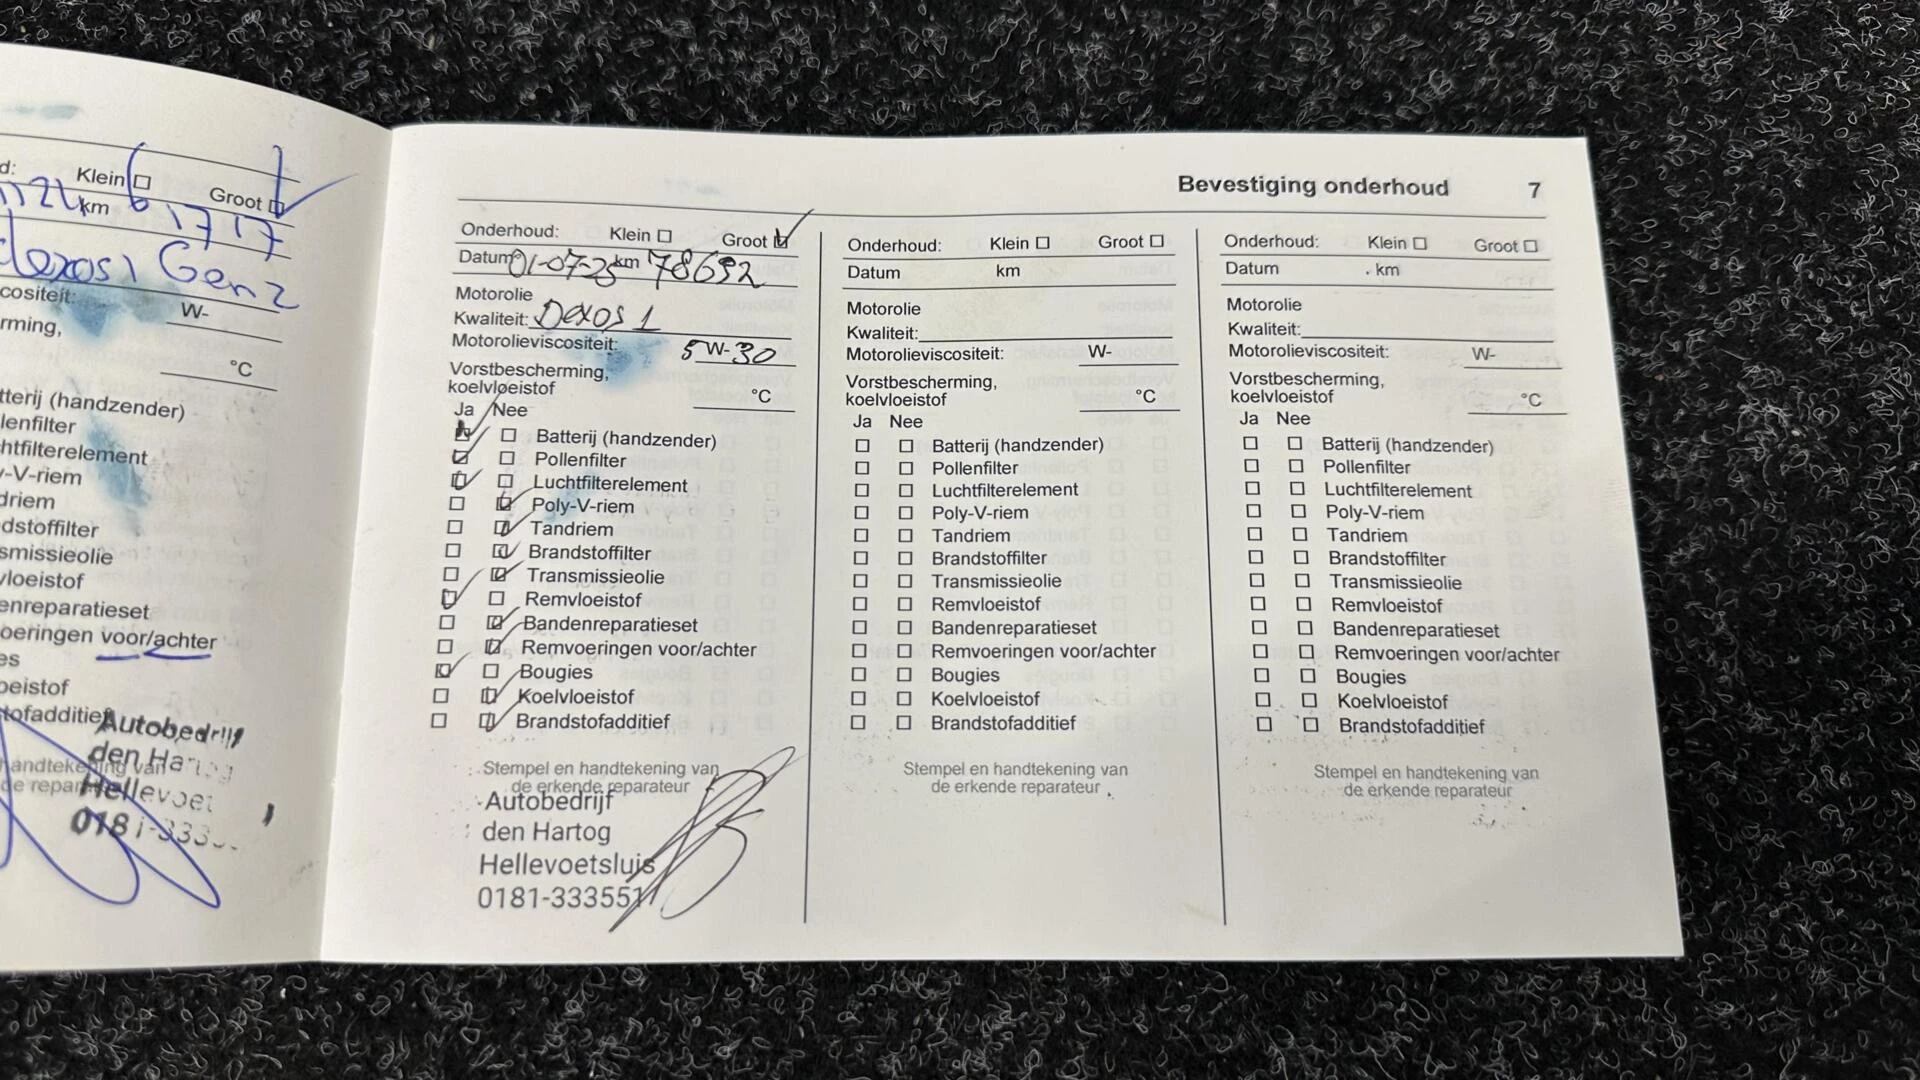 d: Klein Groot
km 61717
dexos 1 Gen 2
cositeit: W-
rming,
°C
tterij (handzender)
lenfilter
htfilterelement
y-V-riem
driem
dstoffilter
smissieolie
vloeistof
enreparatieset
oeringen voor/achter
es
oeistof
tofadditief
Autobedrijf
den Hartog
andtekening van
de repar
Hellevoet
0181-333
Bevestiging onderhoud 7
Onderhoud: Klein Groot
Datum 01-07-25 km 78692
Motorolie
Kwaliteit: Dexos 1
Motorolieviscositeit: 5 W-30
Vorstbescherming,
koelvloeistof °C
Ja Nee
Batterij (handzender)
Pollenfilter
Luchtfilterelement
Poly-V-riem
Tandriem
Brandstoffilter
Transmissieolie
Remvloeistof
Bandenreparatieset
Remvoeringen voor/achter
Bougies
Koelvloeistof
Brandstofadditief
Stempel en handtekening van
de erkende reparateur
Autobedrijf
den Hartog
Hellevoetsluis
0181-333551
Onderhoud: Klein Groot
Datum km
Motorolie
Kwaliteit:
Motorolieviscositeit: W-
Vorstbescherming,
koelvloeistof °C
Ja Nee
Batterij (handzender)
Pollenfilter
Luchtfilterelement
Poly-V-riem
Tandriem
Brandstoffilter
Transmissieolie
Remvloeistof
Bandenreparatieset
Remvoeringen voor/achter
Bougies
Koelvloeistof
Brandstofadditief
Stempel en handtekening van
de erkende reparateur
Onderhoud: Klein Groot
Datum km
Motorolie
Kwaliteit:
Motorolieviscositeit: W-
Vorstbescherming,
koelvloeistof °C
Ja Nee
Batterij (handzender)
Pollenfilter
Luchtfilterelement
Poly-V-riem
Tandriem
Brandstoffilter
Transmissieolie
Remvloeistof
Bandenreparatieset
Remvoeringen voor/achter
Bougies
Koelvloeistof
Brandstofadditief
Stempel en handtekening van
de erkende reparateur